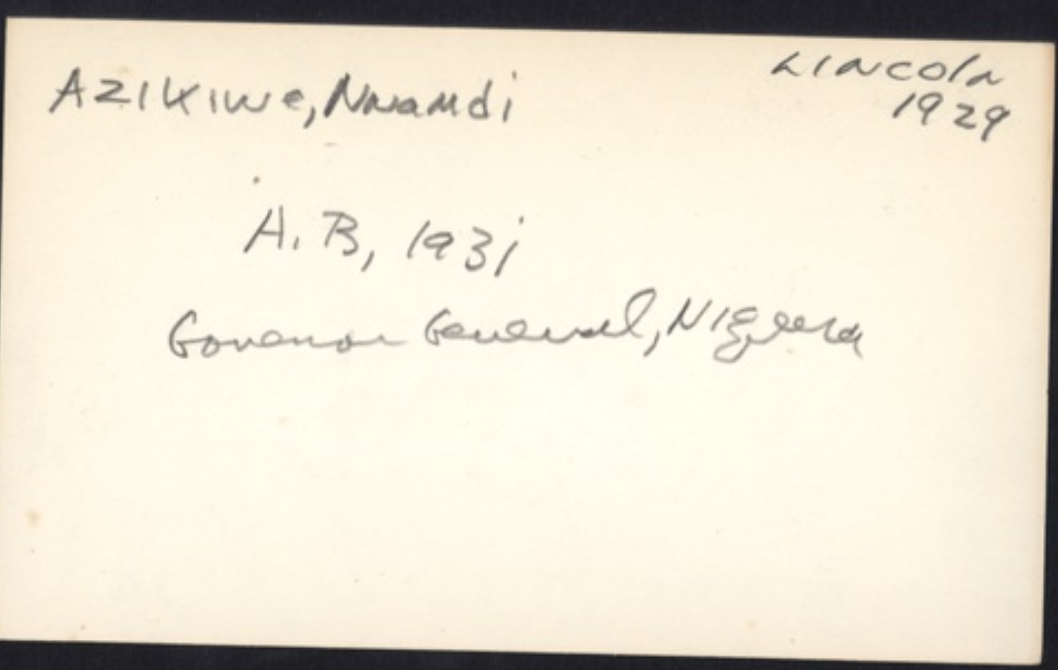 Azikiwe, Nnamdi
Lincoln
1929
A.B, 1931
Govenor General, Nigeria